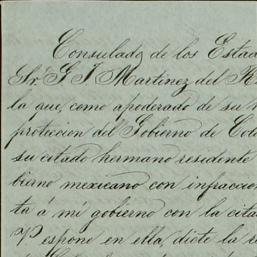 Consulado de los Estad
Sr. G J Martinez del R
la que, como apoderado de su h
proteccion del Gobierno de Col
su citado hermano residente
bierno mexicano con infraccion
ta á mi gobierno con la cita
Y espone en ella, diote la r